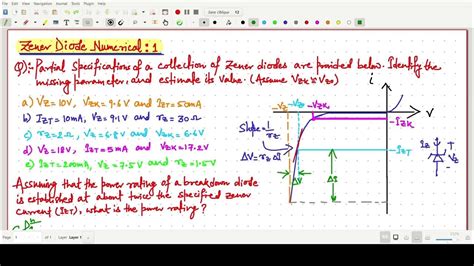 Zener Diode Numerical: 1
Q):- Partial Specifications of a collection of Zener diodes are provided below. Identify the
missing parameter, and estimate its value. (Assume VZK≈VZ0)
a) VZ = 10V, VZK = 9.6V and IZT = 50mA
b) IZT = 10mA, VZ = 9.1V and rz = 30Ω
c) rz = 2Ω, VZ = 6.8V and VZK = 6.6V
d) VZ = 18V, IZT = 5mA and VZK = 17.2V
e) IZT = 200mA, VZ = 7.5V and rz = 1.5Ω
Assuming that the power rating of a breakdown diode
is established at about twice the specified zener
current (IZT), what is the power rating?
i
V
-VZ
-VZ0
-VZK
IZK
Slope = 1/rz
ΔV = rz ΔI
IZT
ΔV
ΔI
IZ
VZ
Page
Layer: Layer 1